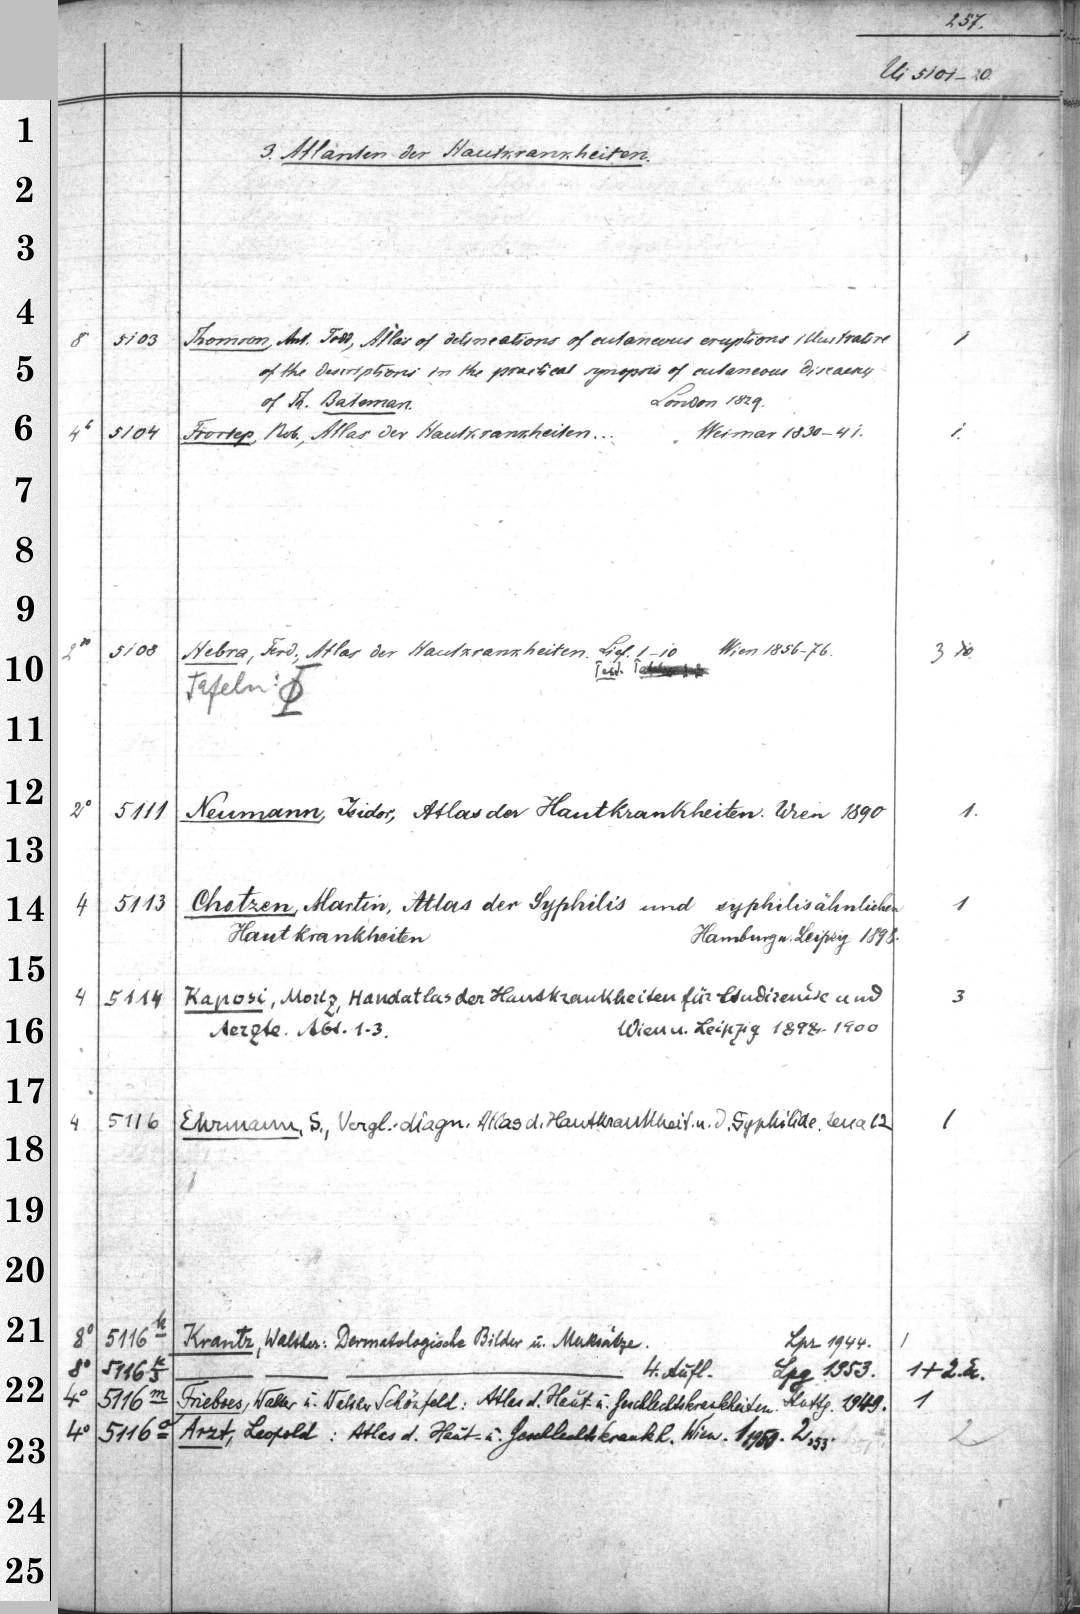 257.
Ui 5101-20.
3. Atlanten der Hautkrankheiten.
8 5103 Thomson, Ant. Todd, Atlas of delineations of cutaneous eruptions illustrative 1
of the descriptions in the practical synopsis of cutaneous diseases
of Th. Bateman. London 1829.
4° 5104 Froriep, Rob., Atlas der Hautkrankheiten... Weimar 1830-41. 1.
2° 5108 Hebra, Ferd., Atlas der Hautkrankheiten. Lief. 1-10 Wien 1856-76. 3
Text.
Tafeln:
2° 5111 Neumann, Isidor, Atlas der Hautkrankheiten. Wien 1890 1.
4 5113 Chotzen, Martin, Atlas der Syphilis und syphilisähnlichen 1
Hautkrankheiten Hamburg u. Leipzig 1898.
4 5114 Kaposi, Moritz, Handatlas der Hautkrankheiten für Studirende und 3
Aerzte. Abt. 1-3. Wien u. Leipzig 1898-1900
4 5116 Ehrmann, S., Vergl.-diagn. Atlas d. Hautkrankheit. u. d. Syphilide. Jena 12 1
8° 5116 k Krantz, Walther: Dermatologische Bilder u. Merksätze. Lpz 1944. 1
8° 5116 k/3 4. Aufl. Lpg 1953. 1+2.Ex.
4° 5116 m Frieboes, Walter u. Walther Schönfeld: Atlas d. Haut- u. Geschlechtskrankheiten. Stuttg. 1949. 1
4° 5116 a Arzt, Leopold: Atlas d. Haut- u. Geschlechtskrankh. Wien. 1, 1950. 2, 1953. 2
1
2
3
4
5
6
7
8
9
10
11
12
13
14
15
16
17
18
19
20
21
22
23
24
25